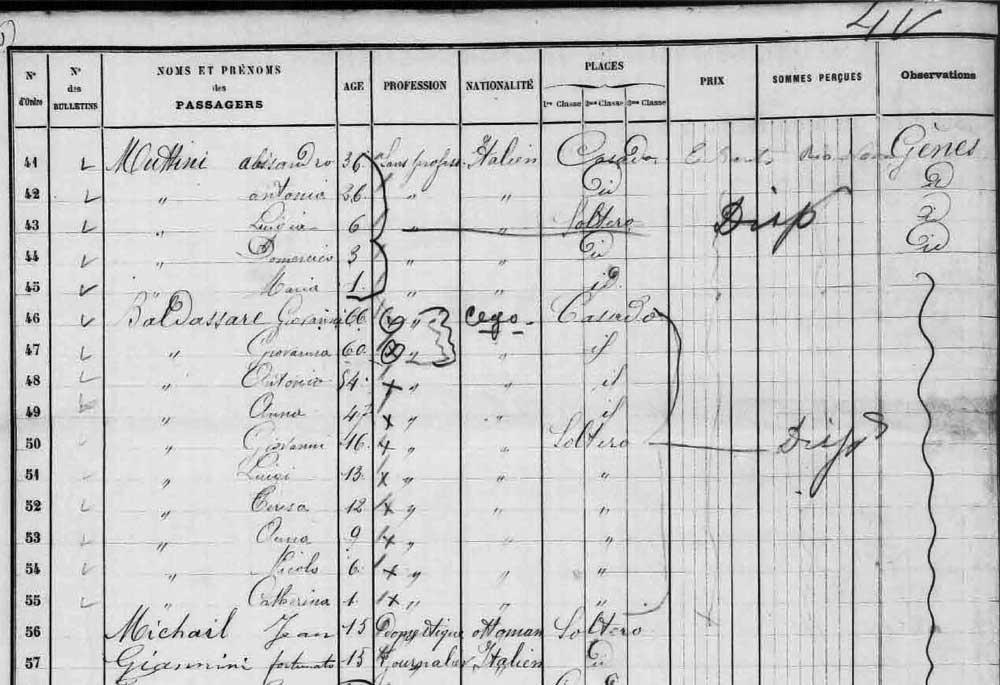 4V
N° d'Ordre N° des BULLETINS NOMS ET PRÉNOMS des PASSAGERS AGE PROFESSION NATIONALITÉ PLACES 1re Classe 2me Classe 3me Classe PRIX SOMMES PERÇUES Observations
41 Muttini alissandro 36 Sans profess. Italien Casado Gênes
42 " antonia 36 " " id id
43 " Luigia 6 " " Soltero Disp id
44 " Domenico 3 " " id id
45 " Maria 1 " " id
46 Baldassare Giovanni 66 " Cego Casado
47 " Giovanna 60 " id
48 " Antonio 54 " " id
49 " Anna 47 " " id
50 " Giovanni 16 " " Soltero Disp
51 " Luigi 13 " " "
52 " Teresa 12 " " "
53 " Anna 9 " " "
54 " Nicola 6 " " "
55 " Catherina 1 " " "
56 Michail Jean 15 Domestique ottoman Soltero
57 Giannini fortunato 15 Journalier Italien id